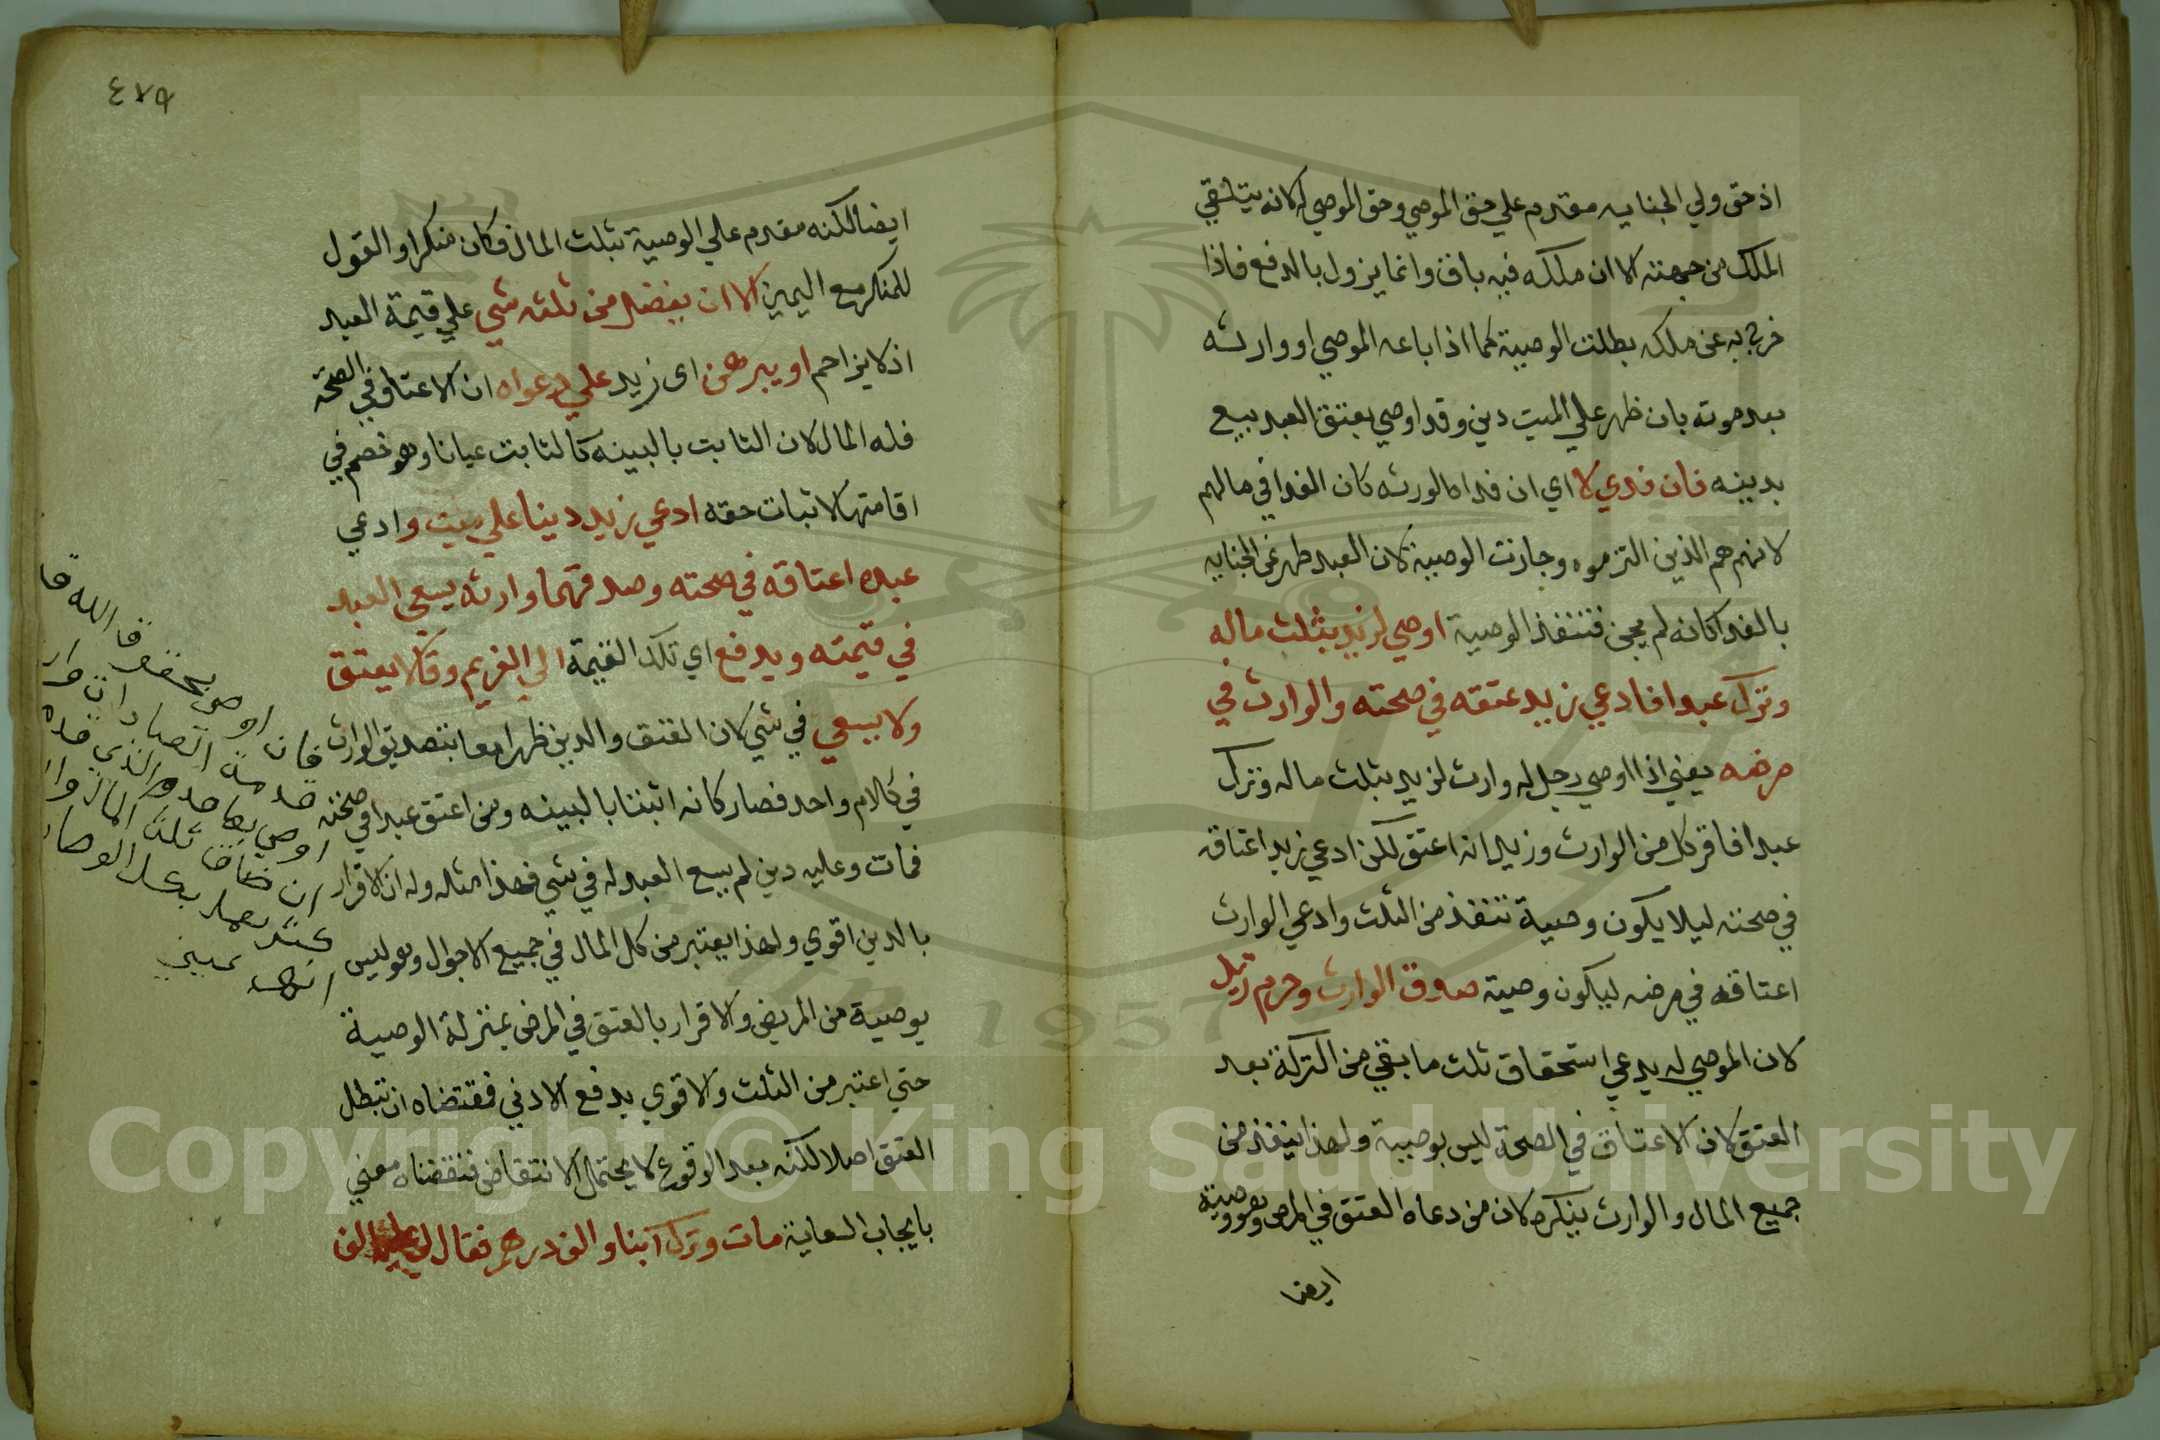 اذ حق ولي الجنايه مقدم علي حق الموصي وحق الموصي له لانه يتلقي
الملك من جهته الا ان ملكه فيه باق وانما يزول بالدفع فاذا
خرج به عن ملكه بطلت الوصية كما اذا باعه الموصي او وارثه
بعد موته بان ظهر علي الميت دين وقد اوصي بعتق العبد يبيع
بدينه فان فدي لا اي ان فداه الورثه كان الفدا في مالهم
لانهم هم الذين التزموه وجازت الوصية لان العبد طهر عن الجنايه
بالفدا كانه لم يجن فتنفذ الوصية اوصي لزيد بثلث ماله
وترك عبدا فادعي زيد عتقه في صحته والوارث في
مرضه يعني اذا اوصي رجل له وارث لزيد بثلث ماله وترك
عبدا فاقر كل من الوارث وزيد انه اعتق لكن ادعي زيد اعتاقه
في صحته ليلا يكون وصية تنفذ من الثلث وادعي الوارث
اعتاقه في مرضه ليكون وصية صدق الوارث وحرم زيد
لان الموصي له يدعي استحقاق ثلث ما بقي من التركة بعد
العتق لان الاعتاق في الصحة ليس بوصية ولهذا ينفذ من
جميع المال والوارث ينكره لان من دعاه العتق في المرض وهو وصية
ايضا
٤٧٩
ايضا لكنه مقدم علي الوصية بثلث المال فكان منكرا والقول
للمنكر مع اليمين الا ان يفضل من ثلثه شي علي قيمة العبد
اذ لا يزاحم او يبرهن اي زيد علي دعواه ان الاعتاق في الصحة
فله المال لان الثابت بالبينه كالثابت عيانا وهو خصم في
اقامتها لاثبات حقه ادعي زيد دينا علي ميت وادعي
عبده اعتاقه في صحته وصدقهما وارثه يسعي العبد
في قيمته ويدفع اي تلك القيمة الي الغريم وقالا يعتق
ولا يسعي في شي لان العتق والدين ظهرا معا بتصديق الوارث
في كلام واحد فصار كانه اثبتنا بالبينه ومن اعتق عبدا في صحته
فمات وعليه دين لم يسع العبد له في شي فهذا مثله وله ان الاقرار
بالدين اقوي ولهذا يعتبر من كل المال في جميع الاحوال وهو ليس
بوصية من المريض والاقرار بالعتق في المرض بمنزلة الوصية
حتي اعتبر من الثلث والاقوي يدفع الادني فقتضاه ان تبطل
العتق اصلا لكنه بعد الوقوع لا يحتمل الانتقاض فنقضناه معني
بايجاب السعاية مات وترك ابنا والف درهم فقال الف
فان اوصي بحقوق الله
ان ضاق ثلث المال
انتهي عيني